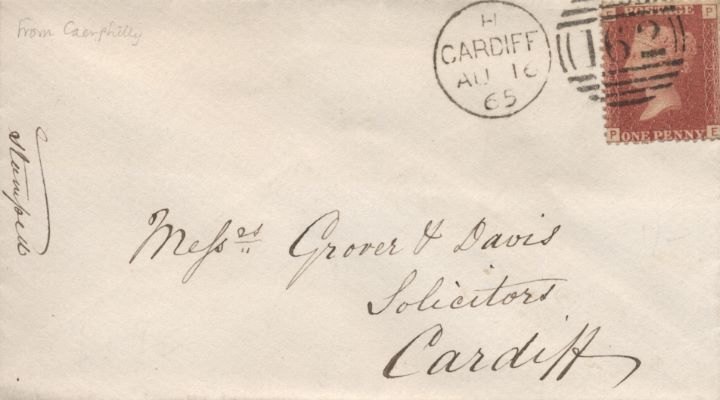 From Caerphilly
H
CARDIFF
AU 16
65
162
E POSTAGE P
P ONE PENNY E
Stamped
Messrs Grover & Davis
Solicitors
Cardiff